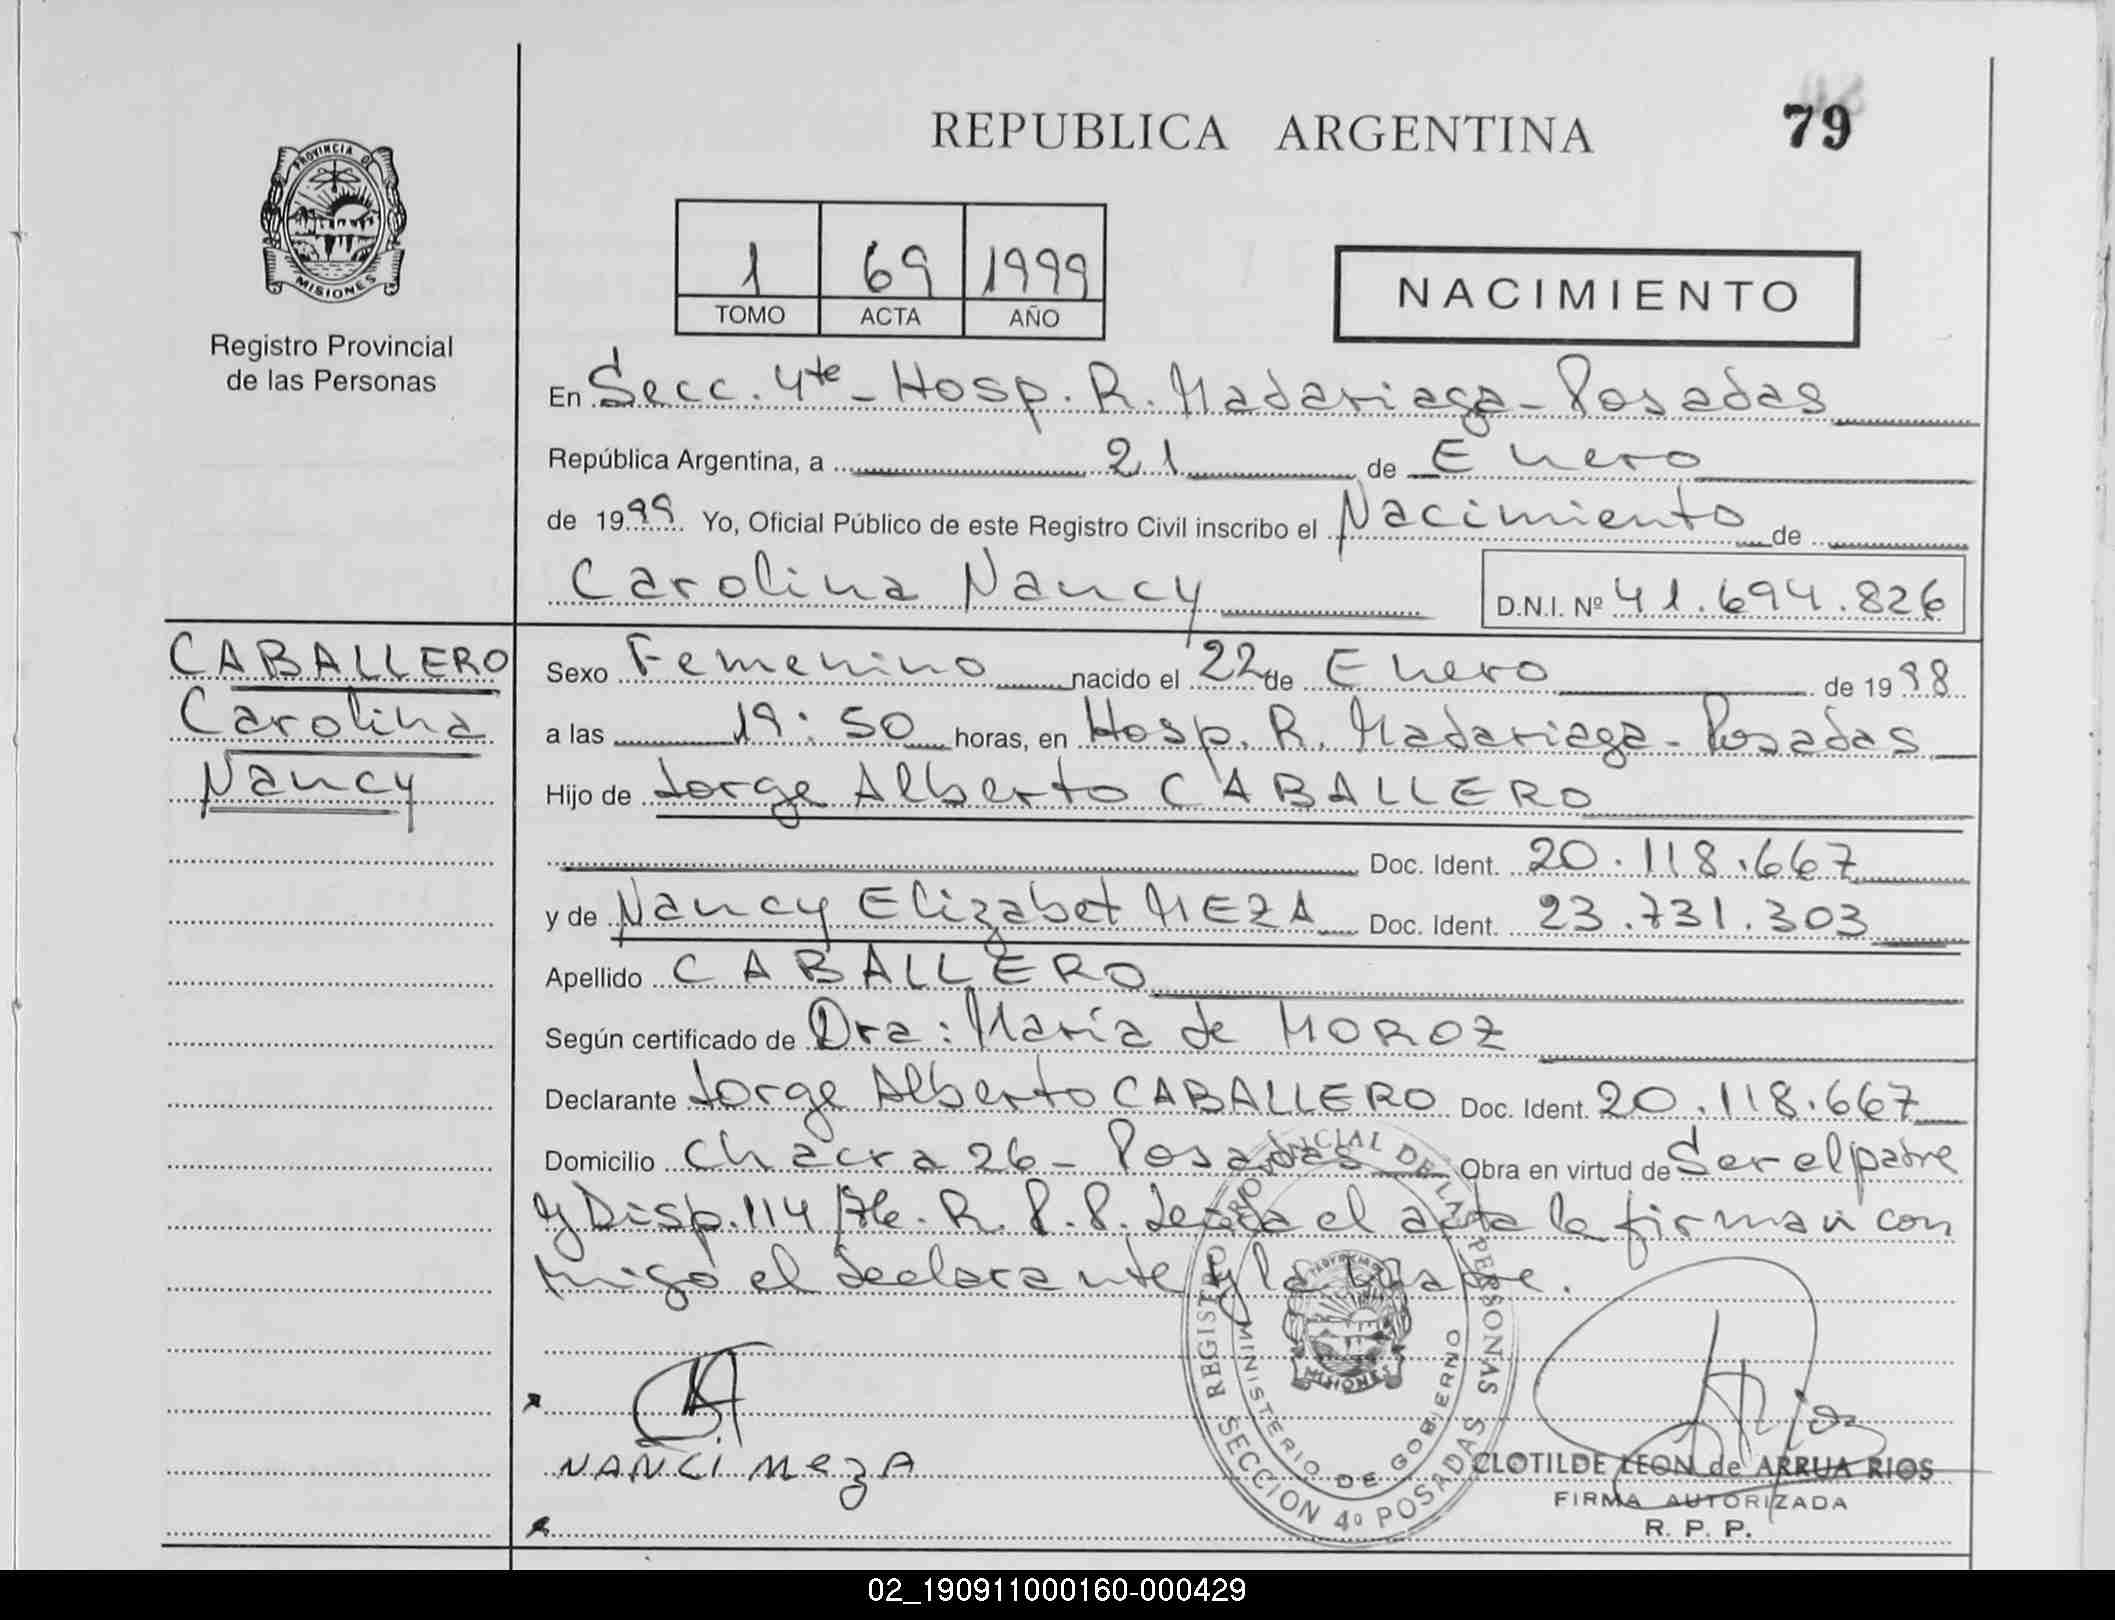 REPUBLICA ARGENTINA
79
PROVINCIA DE
MISIONES
Registro Provincial
de las Personas
1 69 1999
TOMO ACTA AÑO
NACIMIENTO
En Secc. 4te - Hosp. R. Madariaga - Posadas
República Argentina, a 21 de Enero
de 1999 Yo, Oficial Público de este Registro Civil inscribo el Nacimiento de
Carolina Nancy D.N.I. Nº 41.694.826
CABALLERO
Carolina
Nancy
Sexo Femenino nacido el 22 de Enero de 1998
a las 19:50 horas, en Hosp. R. Madariaga - Posadas
Hijo de Jorge Alberto CABALLERO
Doc. Ident. 20.118.667
y de Nancy Elizabet MEZA Doc. Ident. 23.731.303
Apellido CABALLERO
Según certificado de Dra: María de MOROZ
Declarante Jorge Alberto CABALLERO Doc. Ident. 20.118.667
Domicilio Chacra 26 - Posadas Obra en virtud de Ser el padre
y Disp. 114/76. R.P.P. Leída el acta la firman con
migo el declarante y la madre.
REGISTRO PROVINCIAL DE LAS PERSONAS
MINISTERIO DE GOBIERNO
MISIONES
SECCION 4º POSADAS
NANCI MEZA
CLOTILDE LEON de ARRUA RIOS
FIRMA AUTORIZADA
R. P. P.
02_190911000160-000429